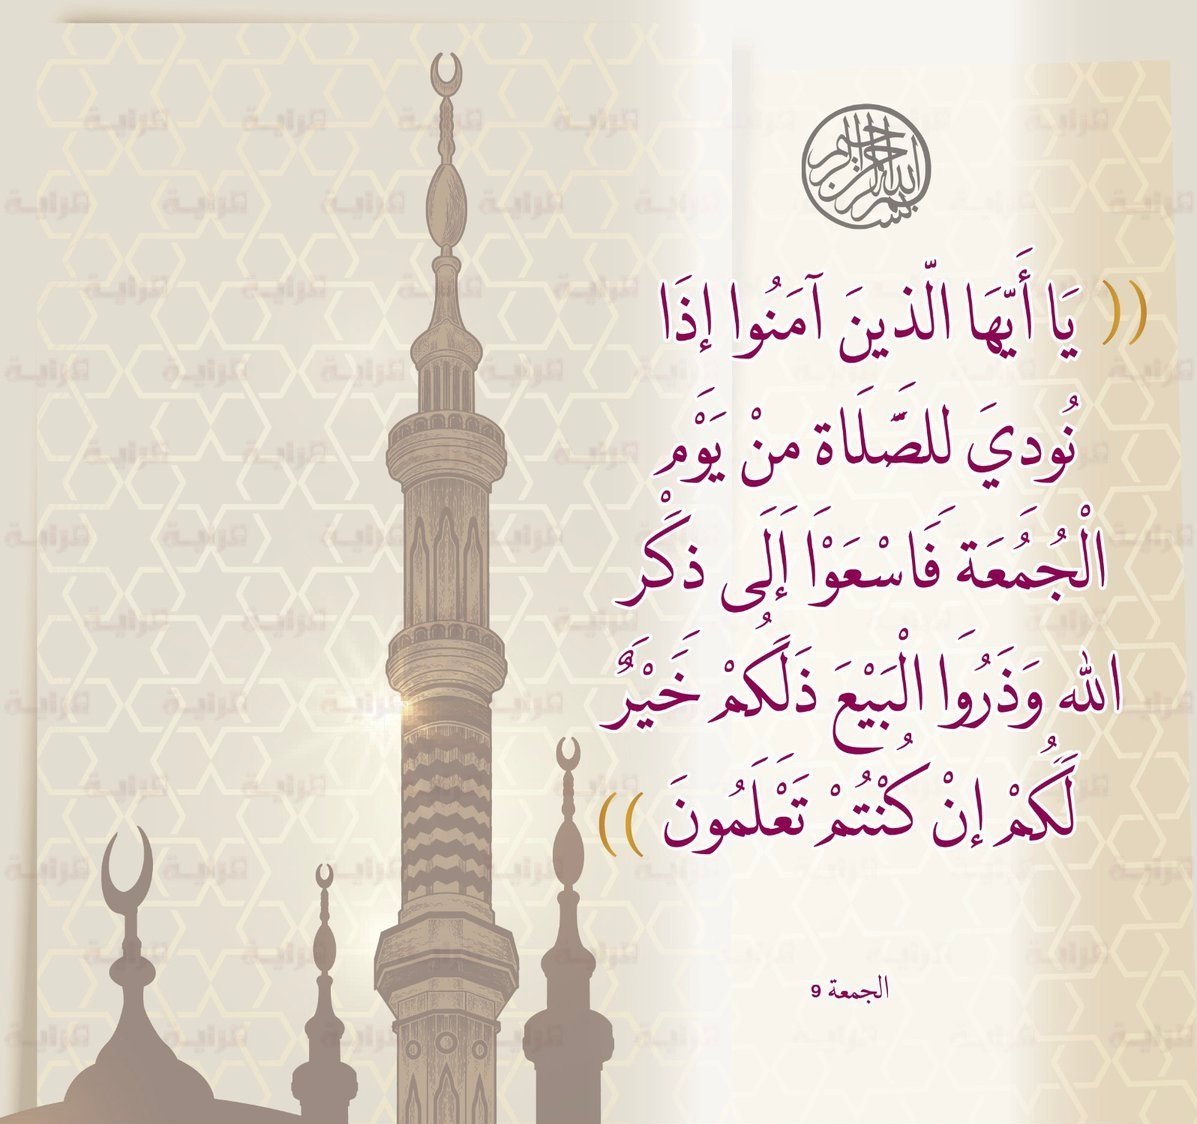 بسم الله الرحمن الرحيم
(( يَا أَيّهَا الّذينَ آمَنُوا إذَا
نُوديَ للصَّلَاة منْ يَوْم
الْجُمُعَة فَاسْعَوْا إلَى ذكْر
الله وَذَرُوا الْبَيْعَ ذَلكُمْ خَيْرٌ
لَكُمْ إنْ كُنْتُمْ تَعْلَمُونَ ))
الجمعة 9